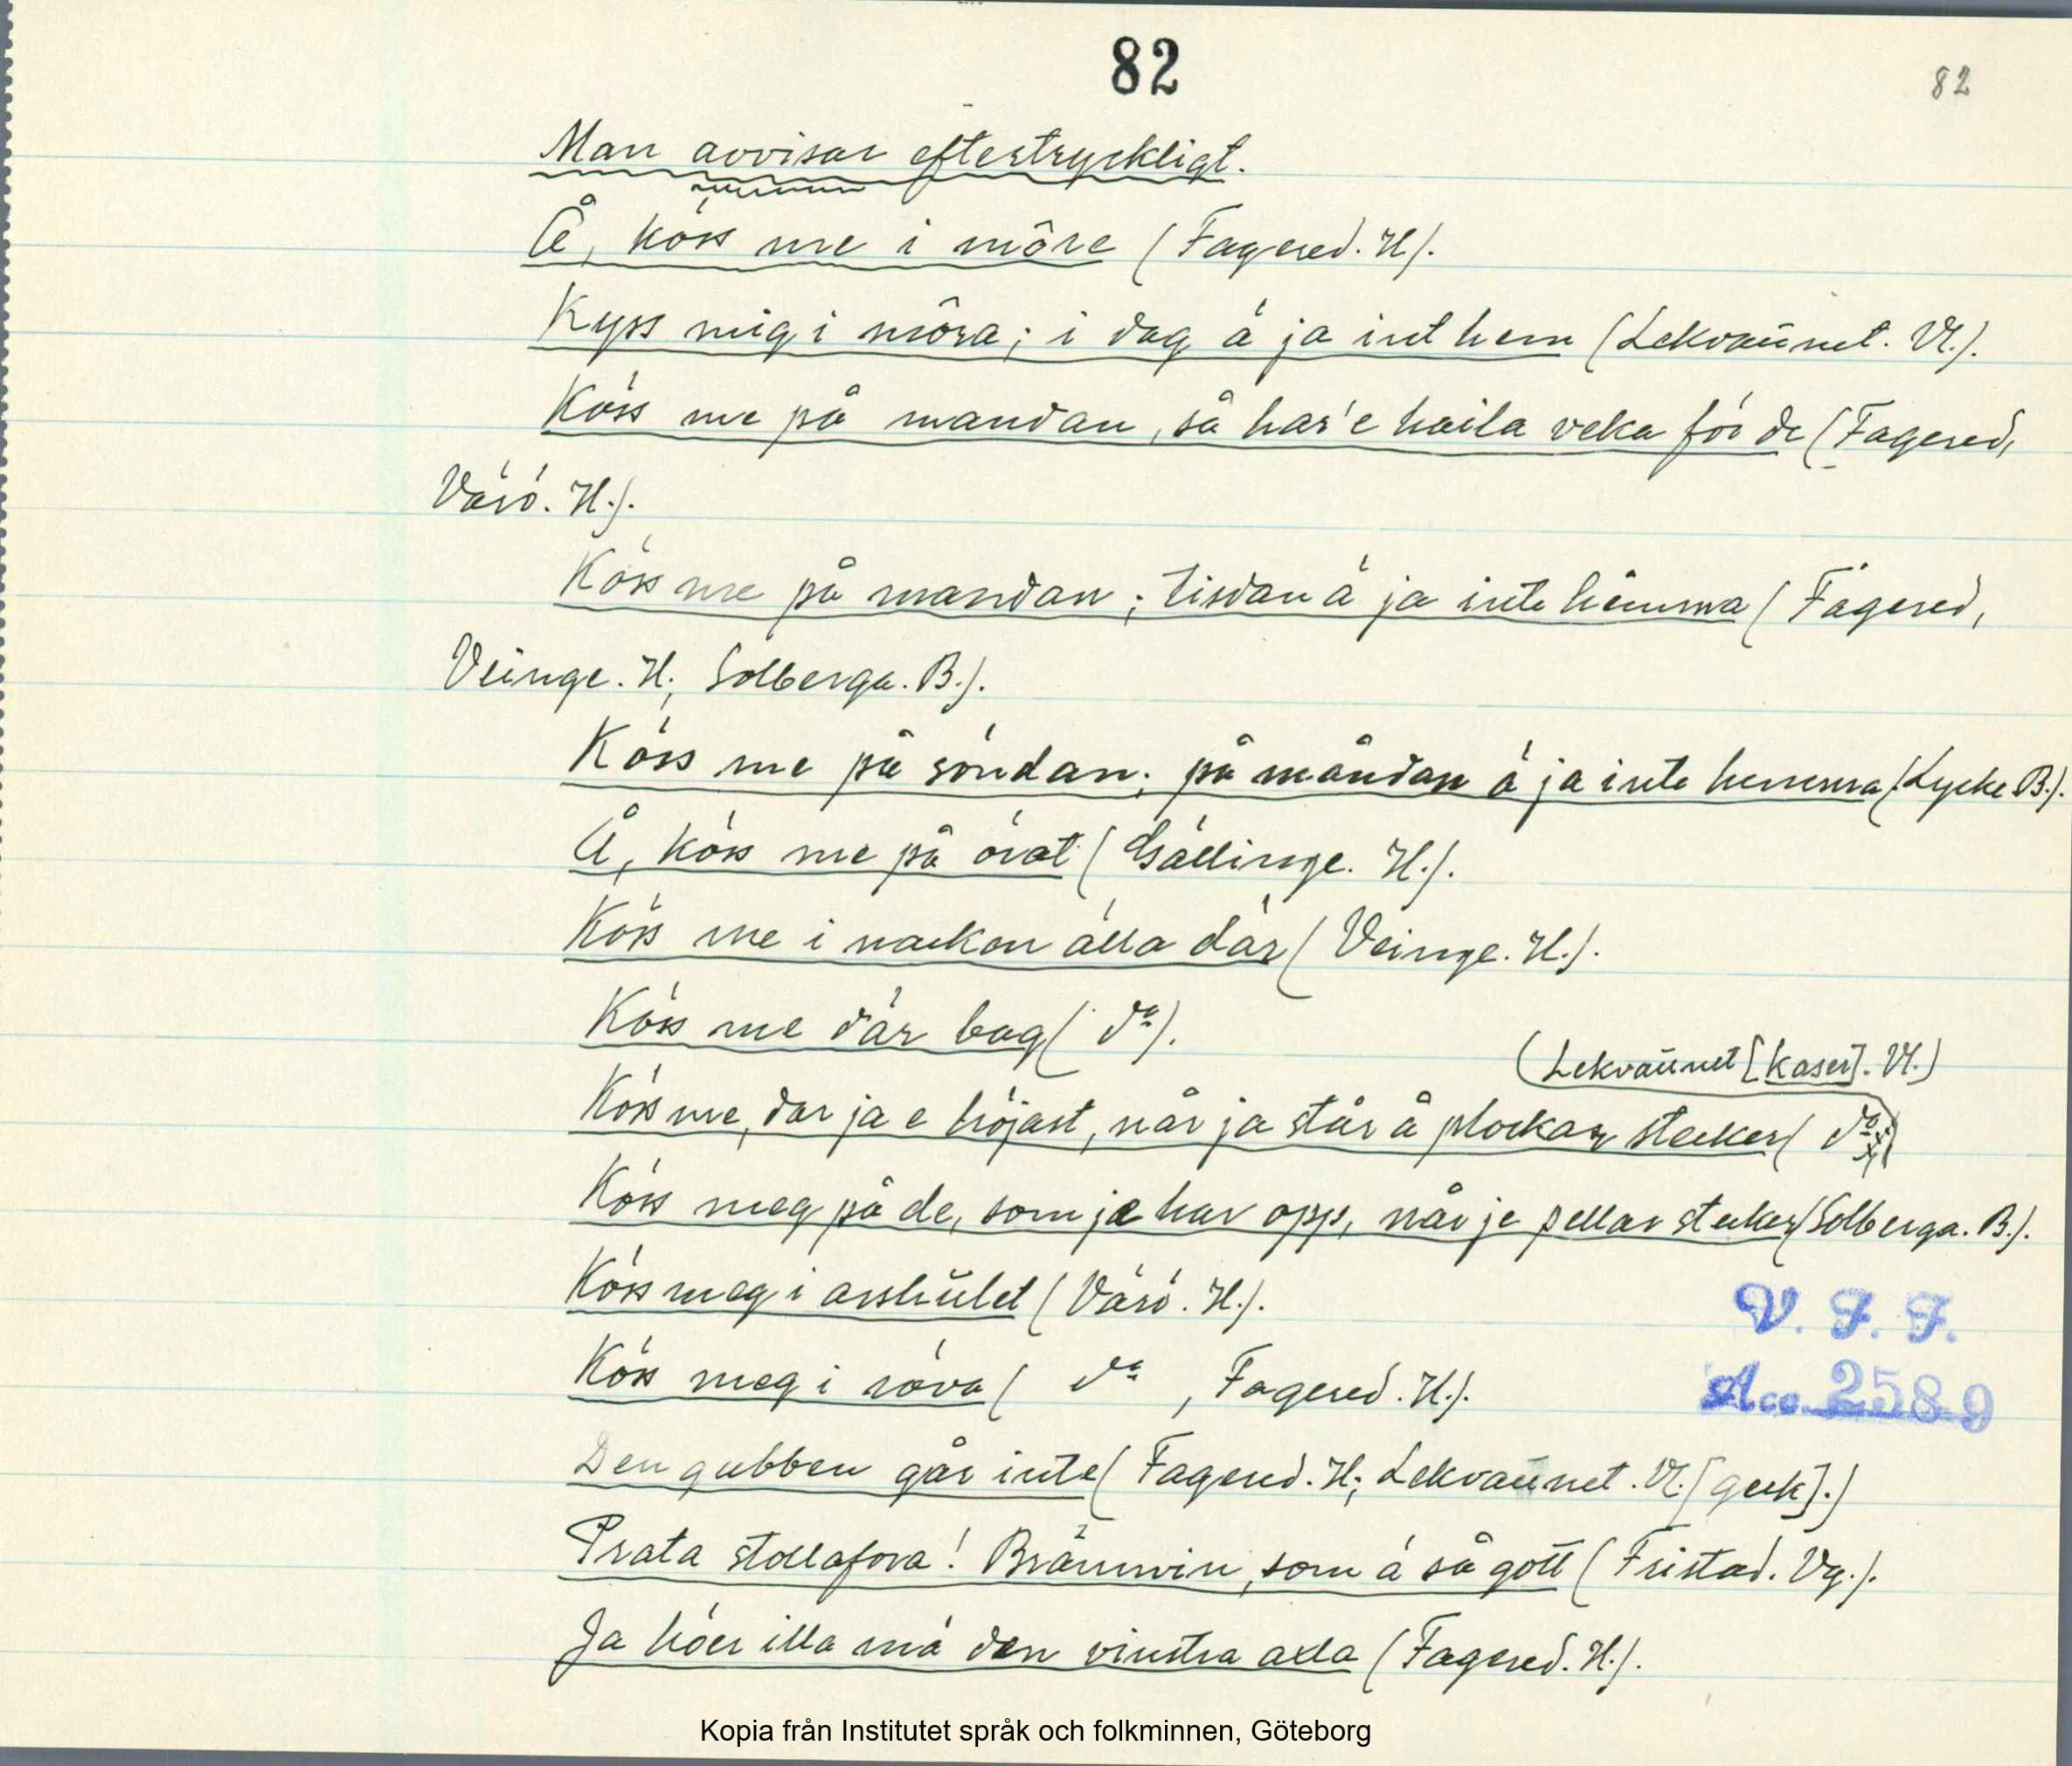 82
82
Man avvisar eftertryckligt.
Å, köss me i môre (Fagered. H).
Kyss mig i môra; i dag ä ja int hem (Lekvattnet. Vl.).
Köss me på mandan, så har'e haila veka för de (Fagered,
Värö. H.).
Köss me på mandan; tisdan ä ja inte hemma (Fagered,
Veinge. H; Solberga. B.).
Köss me på söndan; på måndan ä ja inte hemma (Lycke B.).
Å, köss me på övat (Gällinge. H.).
Köss me i nackon älla där (Veinge. H.).
Köss me där bag (d:o).
(Lekvattnet [kaser]. Vl.)
Köss me, dar ja e höjast, når ja står å plockar stecker (d:o)
Köss meg på de, som je har opp, når je pellar stecker (Solberga. B.).
Köss meg i asshulet (Värö. H.).
Köss meg i röva (d:o, Fagered. H.).
Den gubben går inte (Fagered. H; Lekvattnet. Vl. [geck].)
Prata stollafora! Brännvin, som ä så gott (Fristad. Vg.).
Ja höer illa mä den vinstra axla (Fagered. H.).
V. F. F.
Acc. 2589
Kopia från Institutet språk och folkminnen, Göteborg